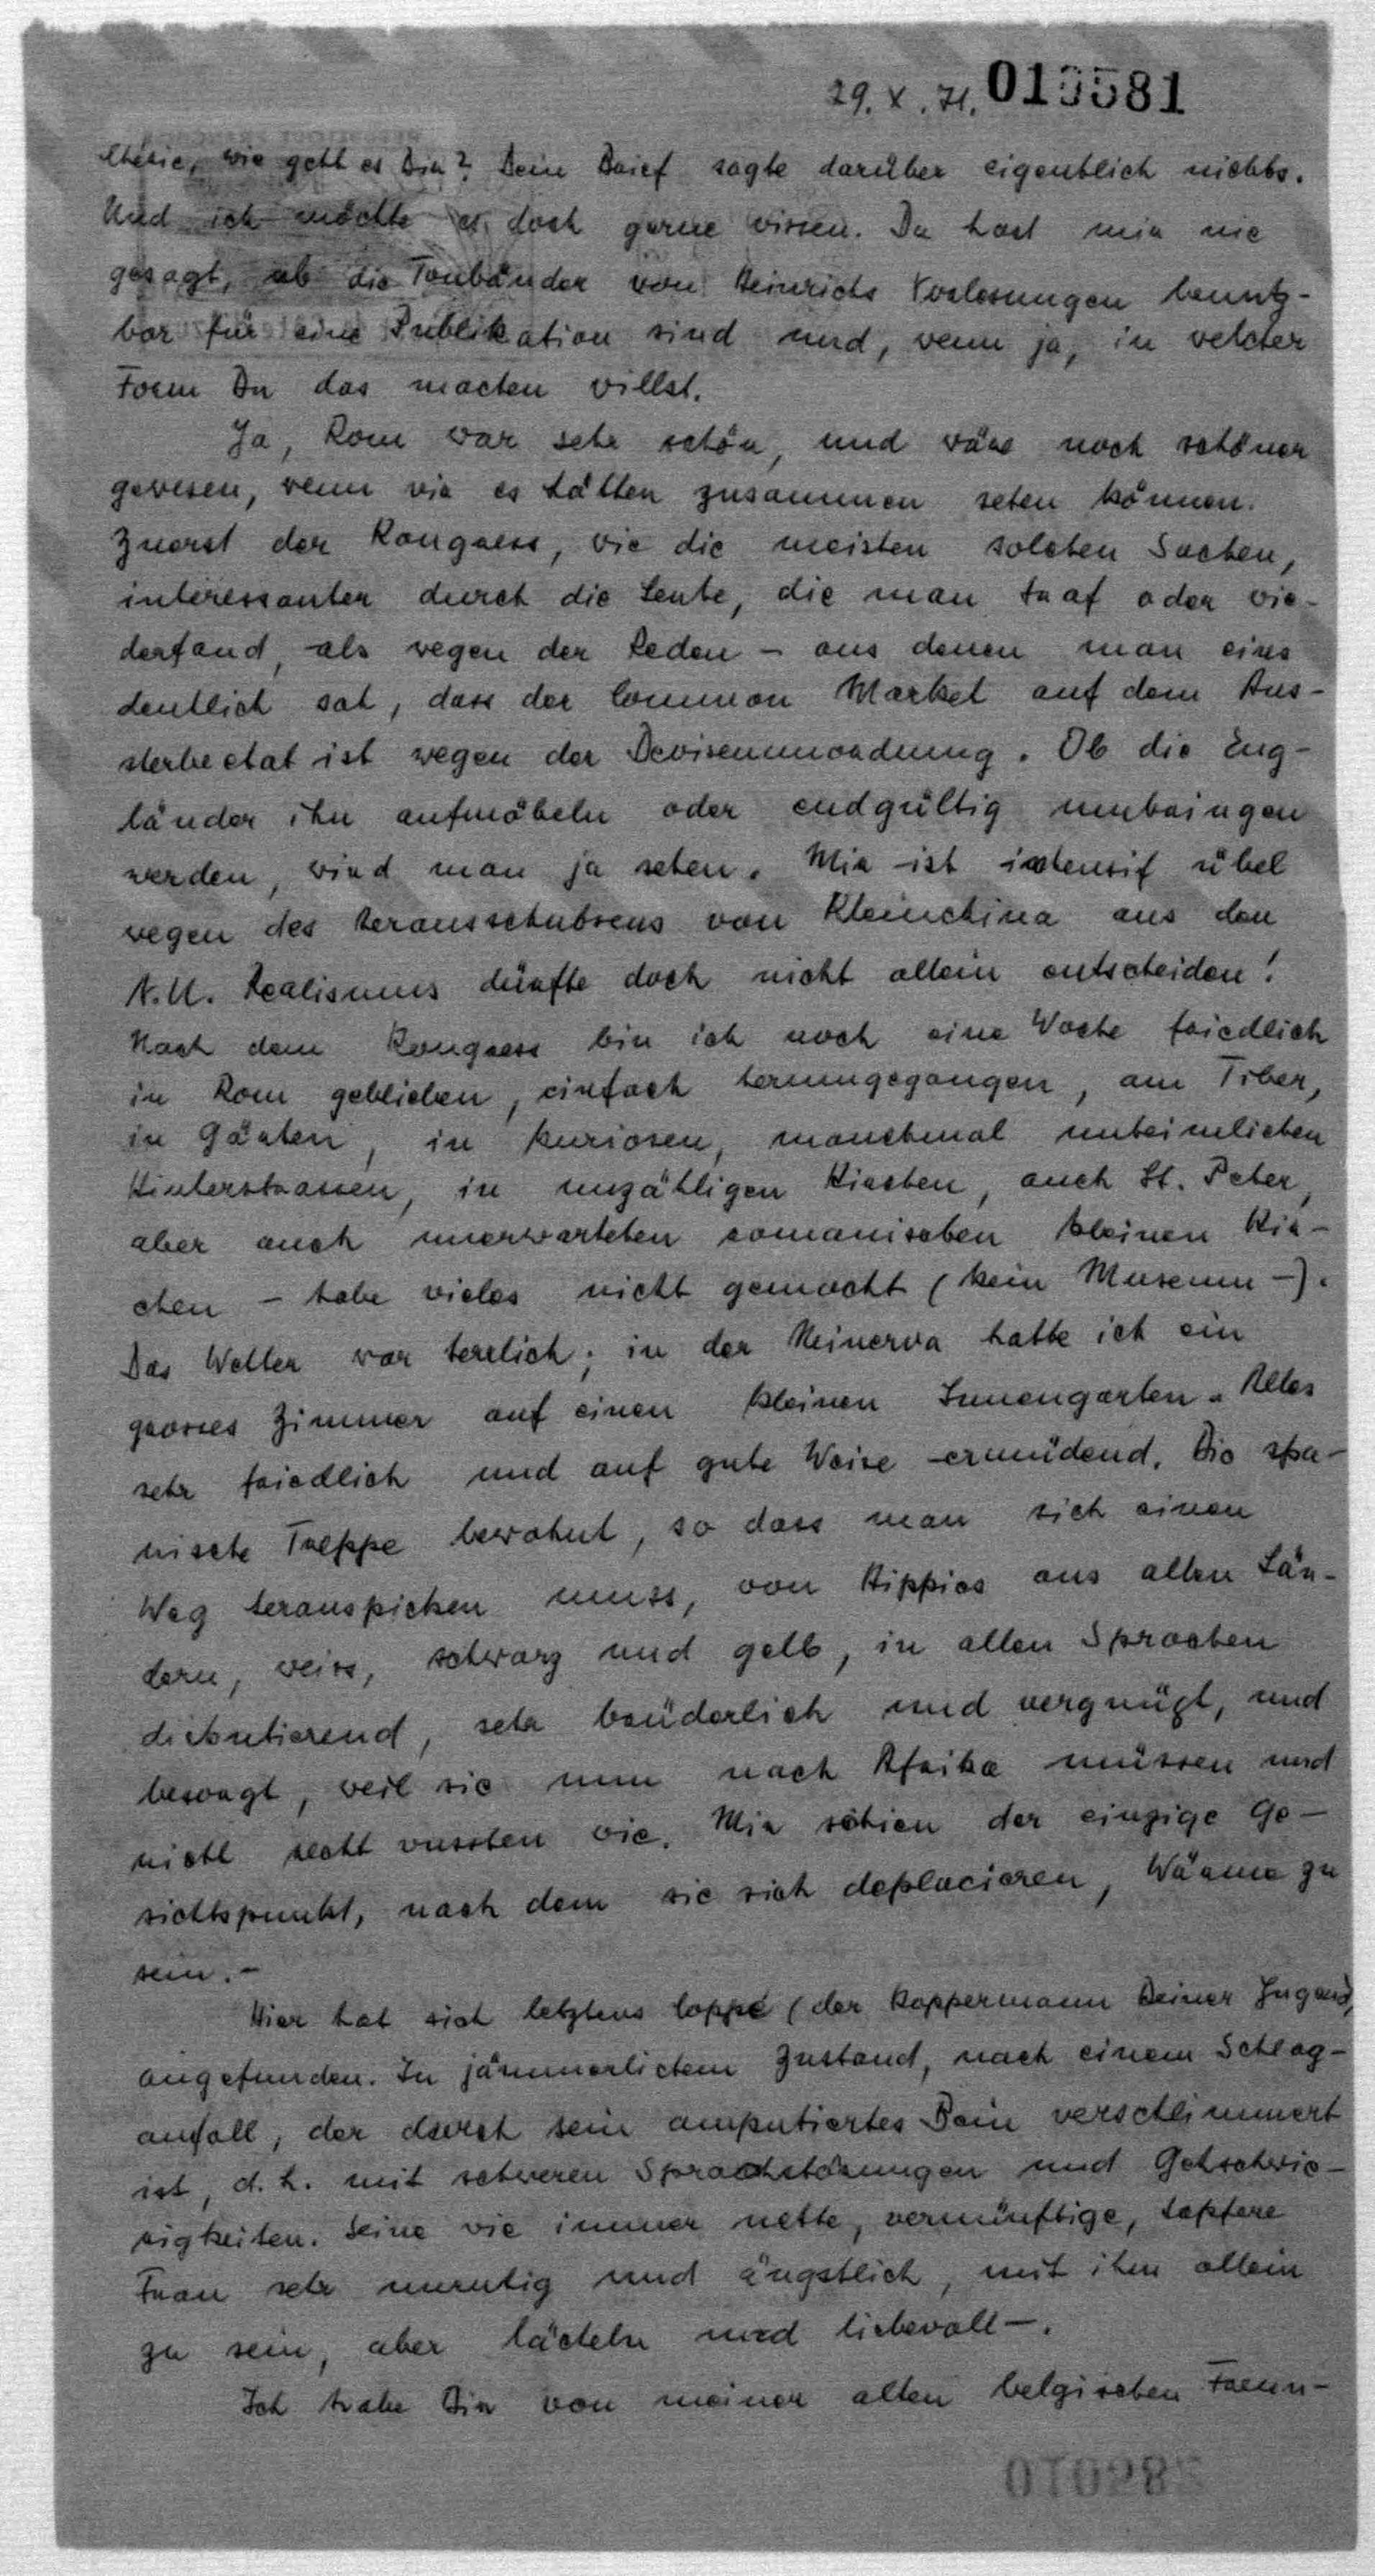 29. X. 71. 013581
Chérie, wie geht es Dir? Dein Brief sagte darüber eigentlich nichts.
Und ich möchte es doch gerne wissen. Du hast mir nie
gesagt, ob die Tonbänder von Heinrichs Vorlesungen benutz-
bar für eine Publikation sind und, wenn ja, in welcher
Form Du das machen willst.
Ja, Rom war sehr schön, und wäre noch schöner
gewesen, wenn wir es hätten zusammen sehen können.
Zuerst der Kongress, wie die meisten solchen Sachen,
interessanter durch die Leute, die man traf oder wie-
derfand, als wegen der Reden – aus denen man eins
deutlich sah, dass der Common Market auf dem Aus-
sterbeetat ist wegen der Devisenunordnung. Ob die Eng-
länder ihn aufmöbeln oder endgültig umbringen
werden, wird man ja sehen. Mir ist intensif übel
wegen des Herausschubsens von Kleinchina aus den
N.U. Realismus dürfte doch nicht allein entscheiden!
Nach dem Kongress bin ich noch eine Woche friedlich
in Rom geblieben, einfach herumgegangen, am Tiber,
in Gärten, in kuriosen, manchmal unheimlichen
Hinterstrassen, in unzähligen Kirchen, auch St. Peter,
aber auch unerwarteten romanischen kleinen Kir-
chen – habe vieles nicht gemacht (kein Museum –).
Das Wetter war herrlich; in der Minerva hatte ich ein
grosses Zimmer auf einen kleinen Innengarten. Alles
sehr friedlich und auf gute Weise ermüdend. Die spa-
nische Treppe bewohnt, so dass man sich einen
Weg herauspicken muss, von Hippies aus allen Län-
dern, weiss, schwarz und gelb, in allen Sprachen
diskutierend, sehr brüderlich und vergnügt, und
besorgt, weil sie nun nach Afrika müssen und
nicht recht wussten wie. Mir schien der einzige Ge-
sichtspunkt, nach dem sie sich deplacieren, Wärme zu
sein. –
Hier hat sich letztens Coppé (der Koppermann Deiner Jugend)
angefunden. In jämmerlichem Zustand, nach einem Schlag-
anfall, der durch sein amputiertes Bein verschlimmert
ist, d.h. mit schweren Sprachstörungen und Gehschwie-
rigkeiten. Seine wie immer nette, vernünftige, tapfere
Frau sehr unruhig und ängstlich, mit ihm allein
zu sein, aber lächeln und liebevoll –.
Ich habe Dir von meiner alten belgischen Freun-